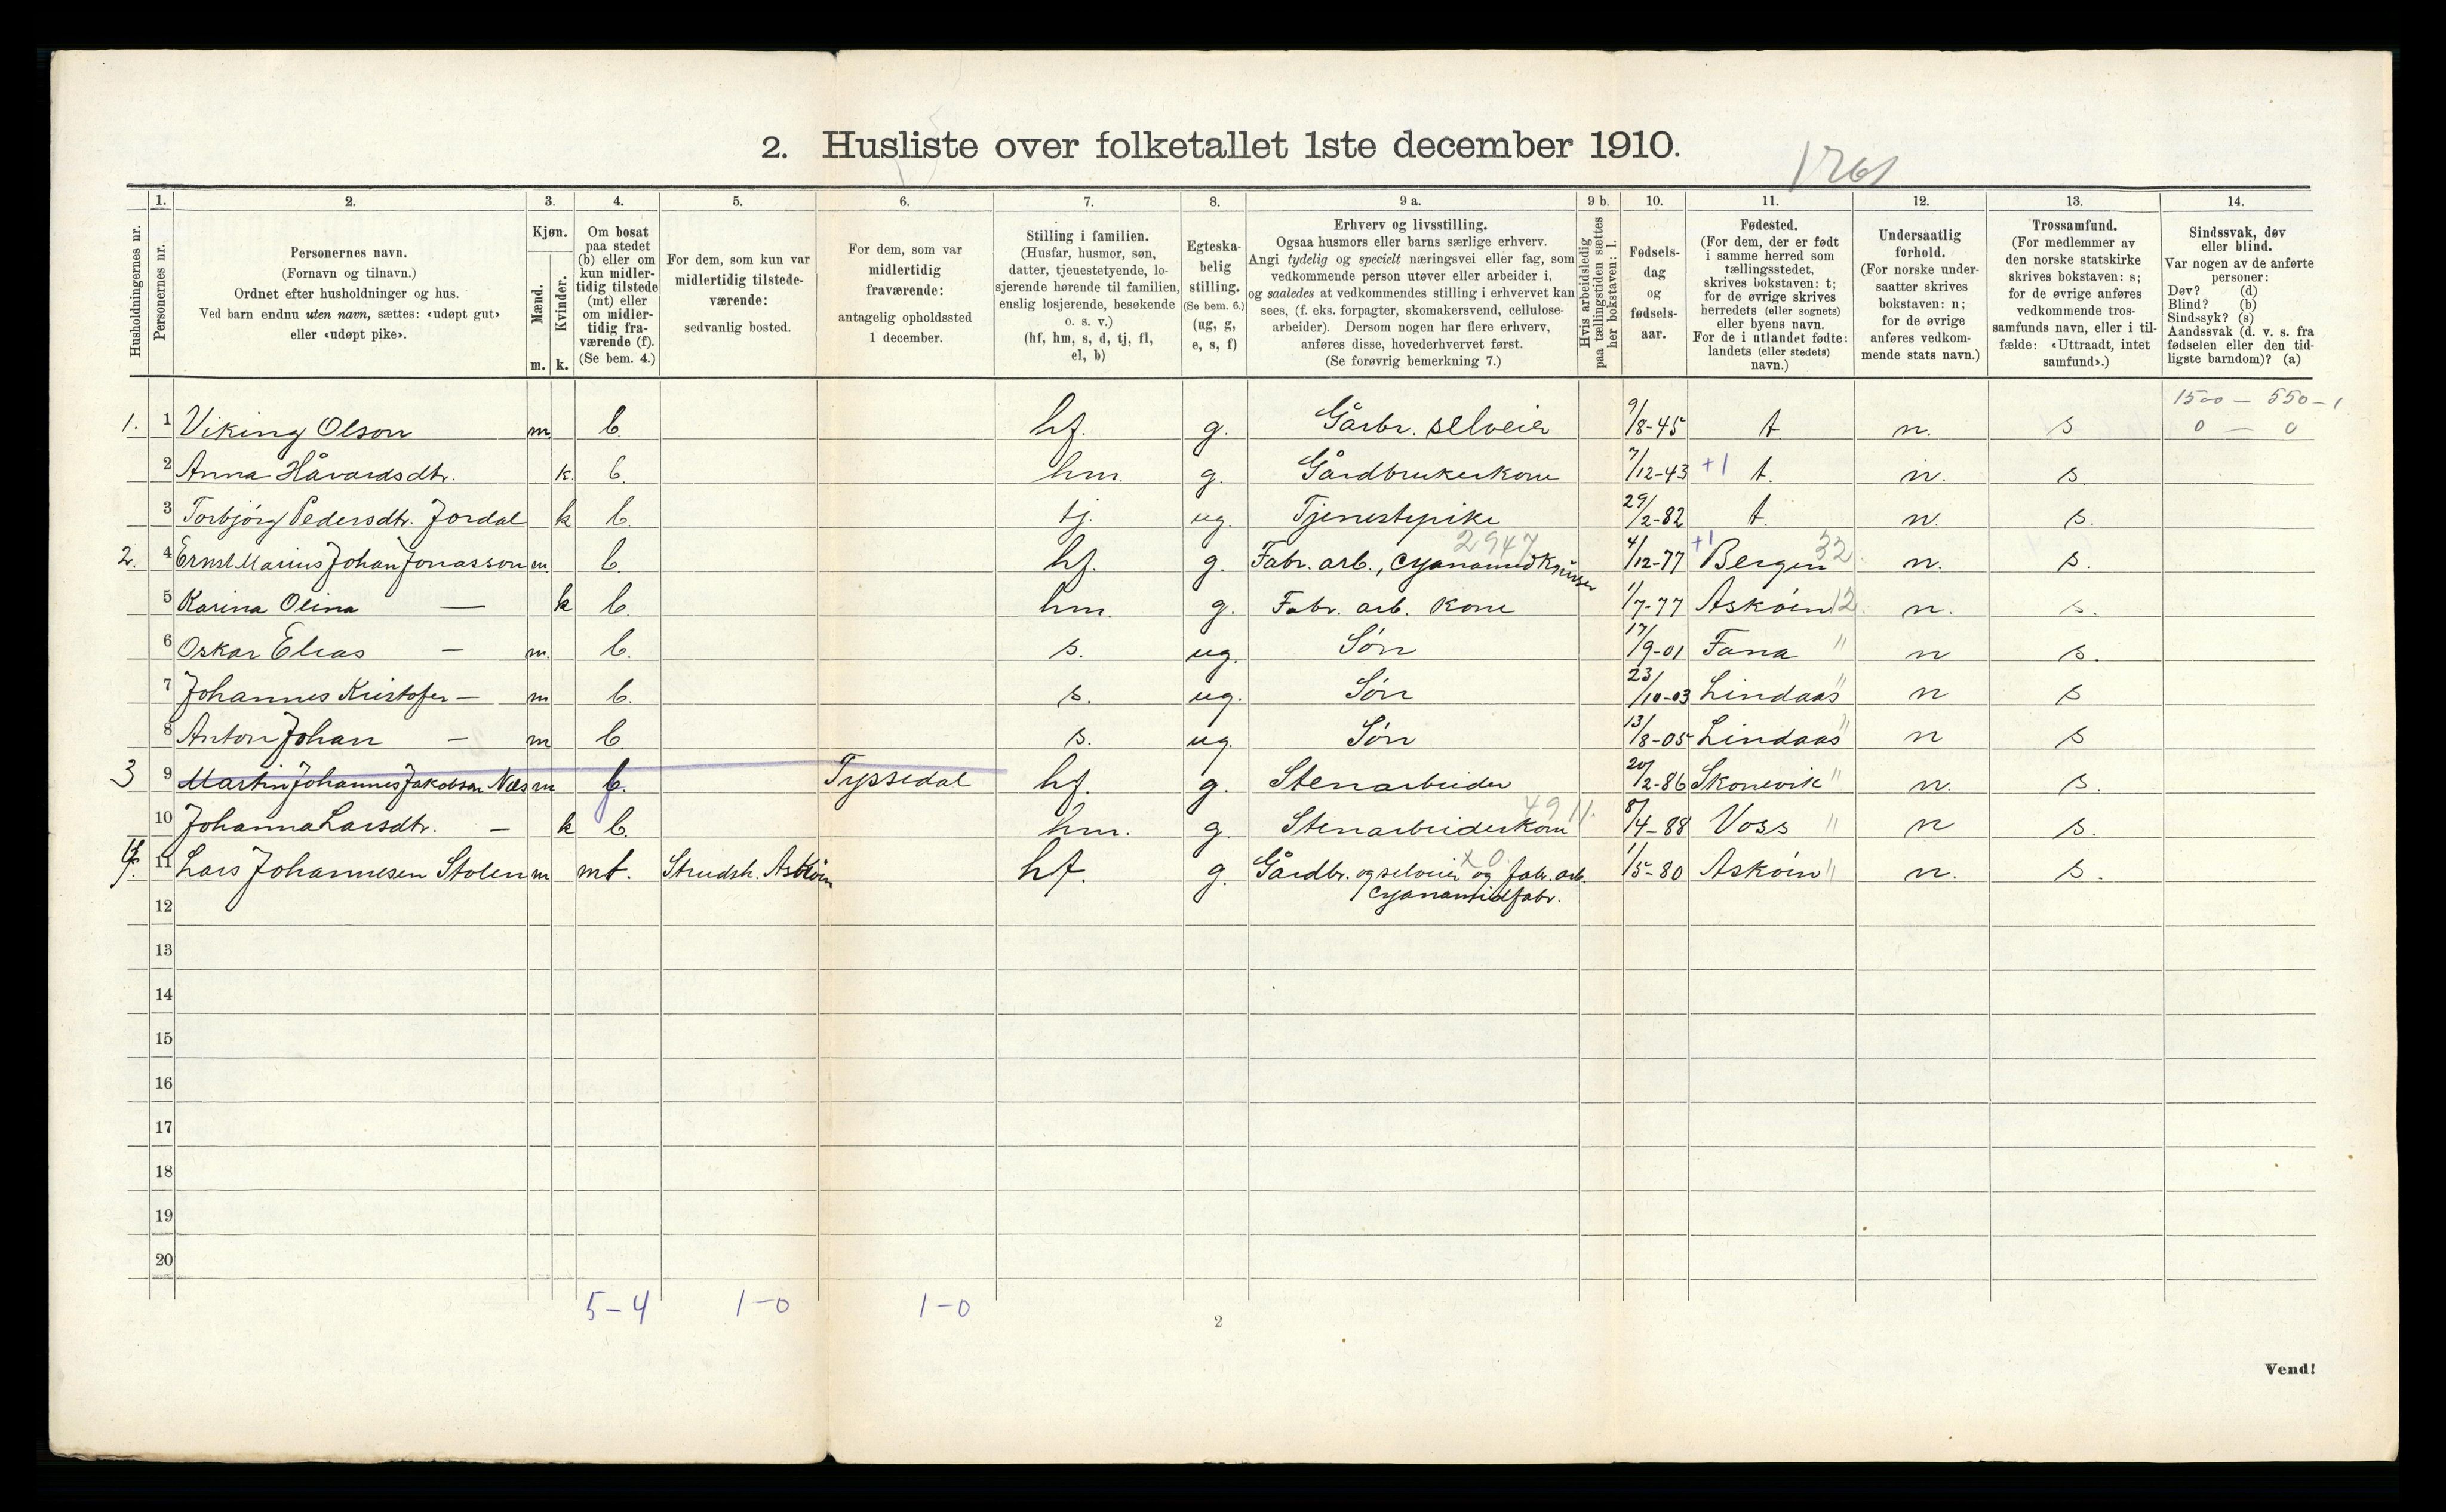 2. Husliste over folketallet 1ste december 1910.
1. 2. 3. 4. 5. 6. 7. 8. 9 a. 9 b. 10. 11. 12. 13. 14.
Husholdningernes nr.
Personernes nr.
Personernes navn.
(Fornavn og tilnavn.)
Ordnet efter husholdninger og hus.
Ved barn endnu uten navn, sættes: «udøpt gut»
eller «udøpt pike».
Kjøn.
Mænd.
Kvinder.
m. k.
Om bosat
paa stedet
(b) eller om
kun midler-
tidig tilstede
(mt) eller
om midler-
tidig fra-
værende (f).
(Se bem. 4.)
For dem, som kun var
midlertidig tilstede-
værende:
sedvanlig bosted.
For dem, som var
midlertidig
fraværende:
antagelig opholdssted
1 december.
Stilling i familien.
(Husfar, husmor, søn,
datter, tjenestetyende, lo-
sjerende hørende til familien,
enslig losjerende, besøkende
o. s. v.)
(hf, hm, s, d, tj, fl,
el, b)
Egteska-
belig
stilling.
(Se bem. 6.)
(ug, g,
e, s, f)
Erhverv og livsstilling.
Ogsaa husmors eller barns særlige erhverv.
Angi tydelig og specielt næringsvei eller fag, som
vedkommende person utøver eller arbeider i,
og saaledes at vedkommendes stilling i erhvervet kan
sees, (f. eks. forpagter, skomakersvend, cellulose-
arbeider). Dersom nogen har flere erhverv,
anføres disse, hovederhvervet først.
(Se forøvrig bemerkning 7.)
Hvis arbeidsledig
paa tællingstiden sættes
her bokstaven: l.
Fødsels-
dag
og
fødsels-
aar.
Fødested.
(For dem, der er født
i samme herred som
tællingsstedet,
skrives bokstaven: t;
for de øvrige skrives
herredets (eller sognets)
eller byens navn.
For de i utlandet fødte:
landets (eller stedets)
navn.)
Undersaatlig
forhold.
(For norske under-
saatter skrives
bokstaven: n;
for de øvrige
anføres vedkom-
mende stats navn.)
Trossamfund.
(For medlemmer av
den norske statskirke
skrives bokstaven: s;
for de øvrige anføres
vedkommende tros-
samfunds navn, eller i til-
fælde: «Uttraadt, intet
samfund».)
Sindssvak, døv
eller blind.
Var nogen av de anførte
personer:
Døv? (d)
Blind? (b)
Sindssyk? (s)
Aandssvak (d. v. s. fra
fødselen eller den tid-
ligste barndom)? (a)
1500 – 550 – 1
1. 1 Viking Olson m b. hf. g. Gårbr. selveier 9/8-45 t n. s 0 – 0
2 Anna Håvardsdtr. k. b. hm. g. Gårdbrukerkone 7/12-43 +1 t. n. s.
3 Torbjörg Pedersdtr. Jordal k b. tj. ug. Tjenestepike 29/2-82 t. n. s.
2947
2. 4 Ernst Marius Johan Jonasson m. b. hf. g. Fabr. arb., cyanamidknuser 4/12-77 +1 Bergen 32 n. s.
5 Karina Olina — k b. hm. g. Fabr. arb. kone 1/7-77 Asköin 12. n. s.
6 Oskar Elias — m. b. s. ug. Sön 17/9-01 Fana " n s.
7 Johannes Kristofer — m b. s. ug. Sön 23/10-03 Lindaas " n s
8 Anton Johan — m b. s. ug. Sön 13/8-05 Lindaas " n s
3 9 Martin Johannes Jakobson Næs m f. Tyssedal hf. g. Stenarbeider 20/2-86 Skonevik " n. s.
4911.
10 Johanna Larsdtr. — k b. hm. g. Stenarbeiderkone 8/4-88 Voss " n s.
x 0.
11 Lars Johannesen Stolen m mt. Strudsh. Asköin hf. g. Gårdbr. og selveier og fabr. arb. 1/5-80 Asköin " n. s.
12 cyanamidfabr.
13
14
15
16
17
18
19
20
5–4 1–0 1–0
2
Vend!